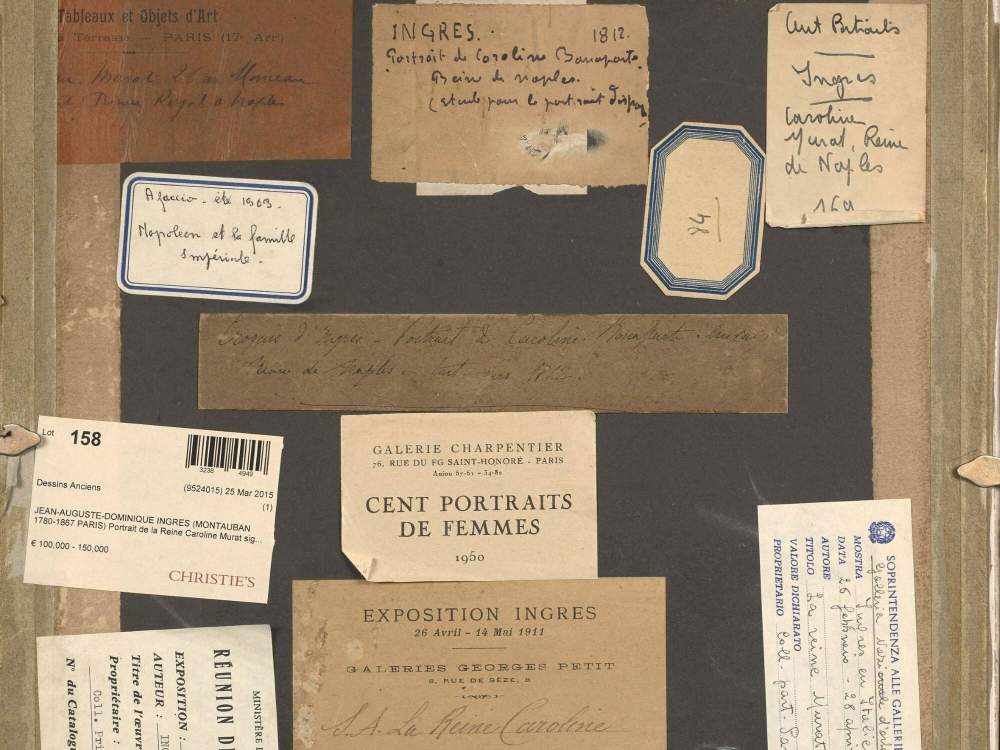 Tableaux et Objets d'Art
Terrasse — PARITS (17e Arr)
Murat
Prince Royal à Naples
INGRES. 1812.
Portrait de Caroline Bonaparte
Reine de naples.
(etude pour le portrait
Cent Portraits
Ingres
Caroline
Murat, Reine
de Naples
Ajaccio - été 1969.
Napoléon et la famille
Impériale.
34
d'Ingres - Portrait de Caroline Bonaparte - Murat
Reine de Naples.
Lot 158
3238 4949
Dessins Anciens (9524015) 25 Mar 2015
(1)
JEAN-AUGUSTE-DOMINIQUE INGRES (MONTAUBAN
1780-1867 PARIS) Portrait de la Reine Caroline Murat sig...
€ 100,000 - 150,000
CHRISTIE'S
GALERIE CHARPENTIER
76, RUE DU FG SAINT-HONORÉ - PARIS
Anjou 67-61 - 54-80
CENT PORTRAITS
DE FEMMES
1950
EXPOSITION INGRES
26 Avril - 14 Mai 1911
GALERIES GEORGES PETIT
8, RUE DE SÈZE, 8
S.A. La Reine Caroline
MINISTÈRE D
RÉUNION DE
EXPOSITION :
AUTEUR : ING
Titre de l'œuvr
Propriétaire :
Coll. Pri
N° du Catalog
SOPRINTENDENZA ALLE GALLERI
Galleria Nazionale d'arte
MOSTRA Ingres en Italie
DATA 26 febbraio - 28 apri
AUTORE
TITOLO La reine Murat
VALORE DICHIARATO
PROPRIETARIO Coll part. Pa